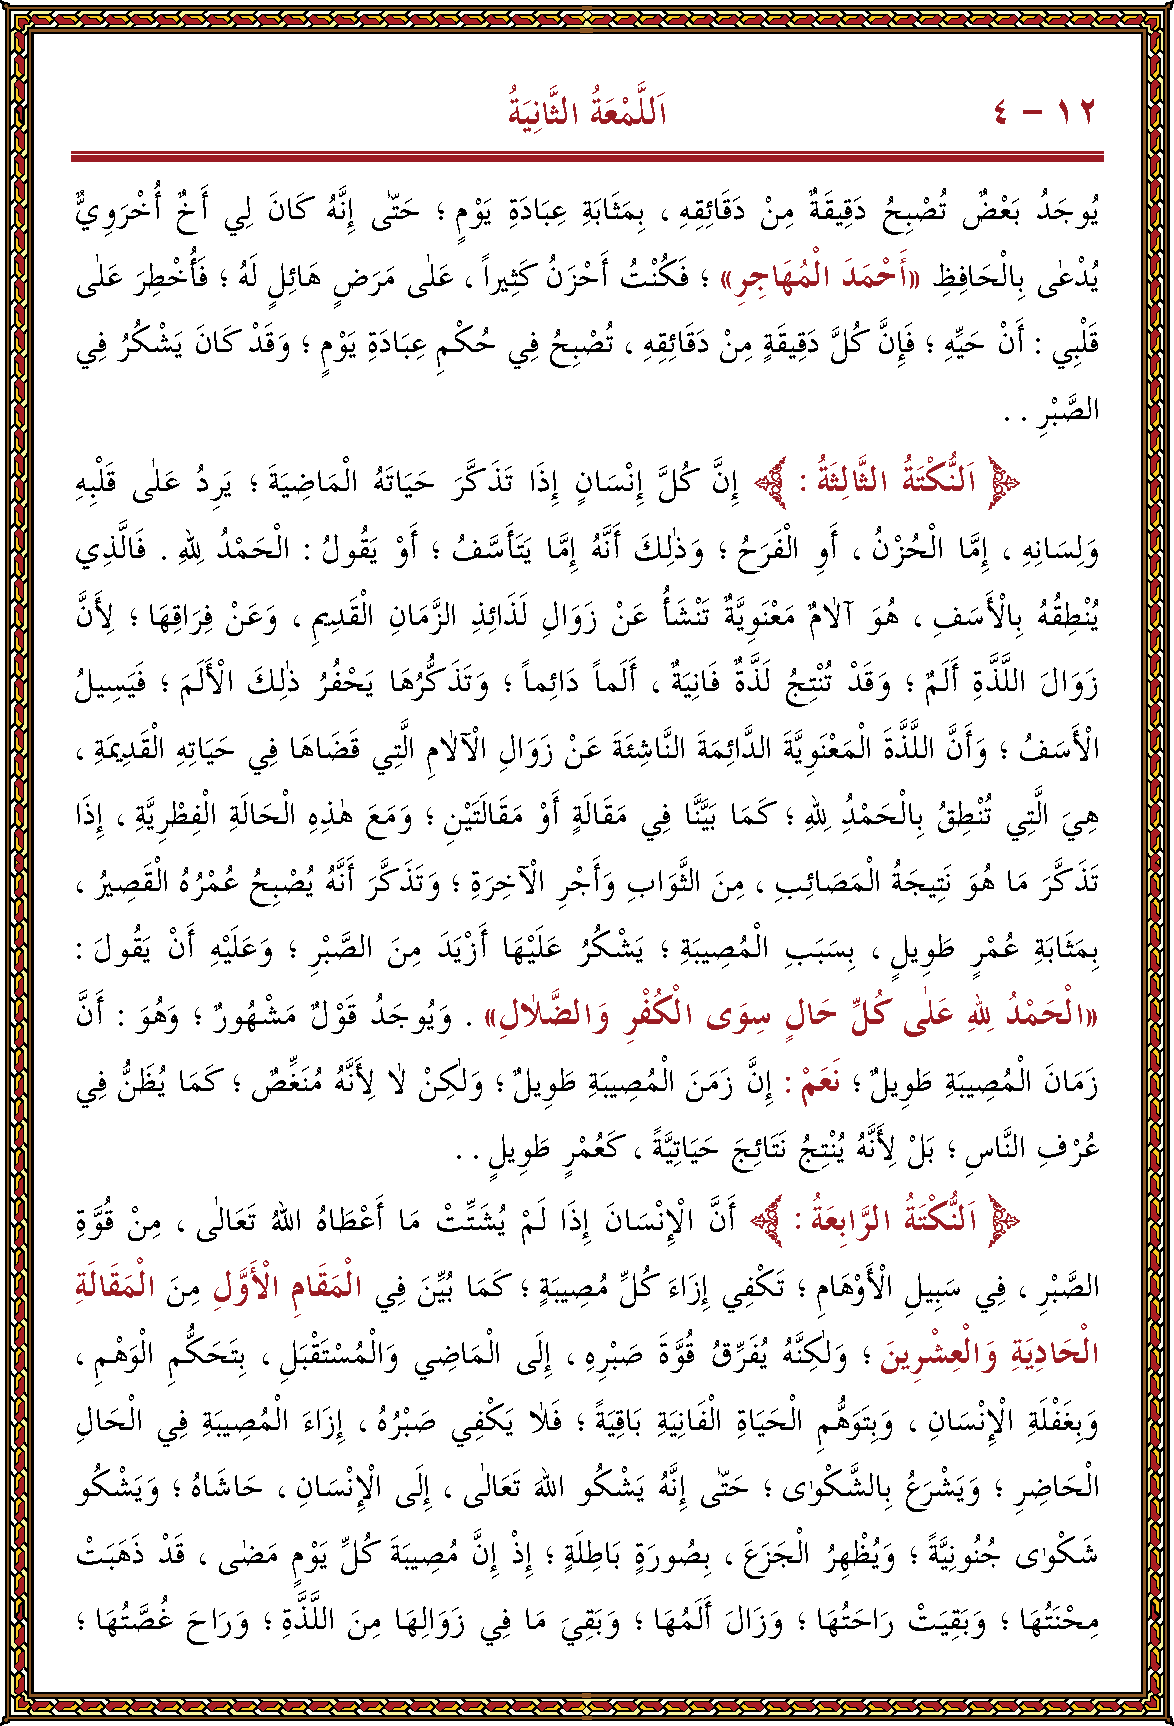 ١٢ - ٤ اَللَّمْعَةُ الثَّانِيَةُ
يُوجَدُ بَعْضٌ تُصْبِحُ دَقِيقَةٌ مِنْ دَقَائِقِهِ ، بِمَثَابَةِ عِبَادَةِ يَوْمٍ ؛ حَتّٰى إِنَّهُ كَانَ لِي أَخٌ أُخْرَوِيٌّ
يُدْعٰى بِالْحَافِظِ «أَحْمَدَ الْمُهَاجِرِ» ؛ فَكُنْتُ أَحْزَنُ كَثِيراً ، عَلٰى مَرَضٍ هَائِلٍ لَهُ ؛ فَأُخْطِرَ عَلٰى
قَلْبِي : أَنْ حَيِّهِ ؛ فَإِنَّ كُلَّ دَقِيقَةٍ مِنْ دَقَائِقِهِ ، تُصْبِحُ فِي حُكْمِ عِبَادَةِ يَوْمٍ ؛ وَقَدْ كَانَ يَشْكُرُ فِي
الصَّبْرِ . .
اَلنُّكْتَةُ الثَّالِثَةُ : إِنَّ كُلَّ إِنْسَانٍ إِذَا تَذَكَّرَ حَيَاتَهُ الْمَاضِيَةَ ؛ يَرِدُ عَلٰى قَلْبِهِ
وَلِسَانِهِ ، إِمَّا الْحُزْنُ ، أَوِ الْفَرَحُ ؛ وَذٰلِكَ أَنَّهُ إِمَّا يَتَأَسَّفُ ؛ أَوْ يَقُولُ : الْحَمْدُ لِلهِ . فَالَّذِي
يُنْطِقُهُ بِالْأَسَفِ ، هُوَ آلاٰمٌ مَعْنَوِيَّةٌ تَنْشَأُ عَنْ زَوَالِ لَذَائِذِ الزَّمَانِ الْقَدِيمِ ، وَعَنْ فِرَاقِهَا ؛ لِأَنَّ
زَوَالَ اللَّذَّةِ أَلَمٌ ؛ وَقَدْ تُنْتِجُ لَذَّةٌ فَانِيَةٌ ، أَلَماً دَائِماً ؛ وَتَذَكُّرُهَا يَحْفُرُ ذٰلِكَ الْأَلَمَ ؛ فَيَسِيلُ
الْأَسَفُ ؛ وَأَنَّ اللَّذَّةَ الْمَعْنَوِيَّةَ الدَّائِمَةَ النَّاشِئَةَ عَنْ زَوَالِ الْآلاٰمِ الَّتِي قَضَاهَا فِي حَيَاتِهِ الْقَدِيمَةِ ،
هِيَ الَّتِي تُنْطِقُ بِالْحَمْدِ لِلهِ ؛ كَمَا بَيَّنَّا فِي مَقَالَةٍ أَوْ مَقَالَتَيْنِ ؛ وَمَعَ هٰذِهِ الْحَالَةِ الْفِطْرِيَّةِ ، إِذَا
تَذَكَّرَ مَا هُوَ نَتِيجَةُ الْمَصَائِبِ ، مِنَ الثَّوَابِ وَأَجْرِ الْآخِرَةِ ؛ وَتَذَكَّرَ أَنَّهُ يُصْبِحُ عُمْرُهُ الْقَصِيرُ ،
بِمَثَابَةِ عُمْرٍ طَوِيلٍ ، بِسَبَبِ الْمُصِيبَةِ ؛ يَشْكُرُ عَلَيْهَا أَزْيَدَ مِنَ الصَّبْرِ ؛ وَعَلَيْهِ أَنْ يَقُولَ :
«الْحَمْدُ لِلهِ عَلٰى كُلِّ حَالٍ سِوَى الْكُفْرِ وَالضَّلاٰلِ» . وَيُوجَدُ قَوْلٌ مَشْهُورٌ ؛ وَهُوَ : أَنَّ
زَمَانَ الْمُصِيبَةِ طَوِيلٌ ؛ نَعَمْ : إِنَّ زَمَنَ الْمُصِيبَةِ طَوِيلٌ ؛ وَلٰكِنْ لاٰ لِأَنَّهُ مُنَغِّصٌ ؛ كَمَا يُظَنُّ فِي
عُرْفِ النَّاسِ ؛ بَلْ لِأَنَّهُ يُنْتِجُ نَتَائِجَ حَيَاتِيَّةً ، كَعُمْرٍ طَوِيلٍ . .
اَلنُّكْتَةُ الرَّابِعَةُ : أَنَّ الْإِنْسَانَ إِذَا لَمْ يُشَتِّتْ مَا أَعْطَاهُ اللهُ تَعَالٰى ، مِنْ قُوَّةِ
الصَّبْرِ ، فِي سَبِيلِ الْأَوْهَامِ ؛ تَكْفِي إِزَاءَ كُلِّ مُصِيبَةٍ ؛ كَمَا بُيِّنَ فِي الْمَقَامِ الْأَوَّلِ مِنَ الْمَقَالَةِ
الْحَادِيَةِ وَالْعِشْرِينَ ؛ وَلٰكِنَّهُ يُفَرِّقُ قُوَّةَ صَبْرِهِ ، إِلَى الْمَاضِي وَالْمُسْتَقْبَلِ ، بِتَحَكُّمِ الْوَهْمِ ،
وَبِغَفْلَةِ الْإِنْسَانِ ، وَبِتَوَهُّمِ الْحَيَاةِ الْفَانِيَةِ بَاقِيَةً ؛ فَلاٰ يَكْفِي صَبْرُهُ ، إِزَاءَ الْمُصِيبَةِ فِي الْحَالِ
الْحَاضِرِ ؛ وَيَشْرَعُ بِالشَّكْوٰى ؛ حَتّٰى إِنَّهُ يَشْكُو اللهَ تَعَالٰى ، إِلَى الْإِنْسَانِ ، حَاشَاهُ ؛ وَيَشْكُو
شَكْوٰى جُنُونِيَّةً ؛ وَيُظْهِرُ الْجَزَعَ ، بِصُورَةٍ بَاطِلَةٍ ؛ إِذْ إِنَّ مُصِيبَةَ كُلِّ يَوْمٍ مَضٰى ، قَدْ ذَهَبَتْ
مِحْنَتُهَا ؛ وَبَقِيَتْ رَاحَتُهَا ؛ وَزَالَ أَلَمُهَا ؛ وَبَقِيَ مَا فِي زَوَالِهَا مِنَ اللَّذَّةِ ؛ وَرَاحَ غُصَّتُهَا ؛